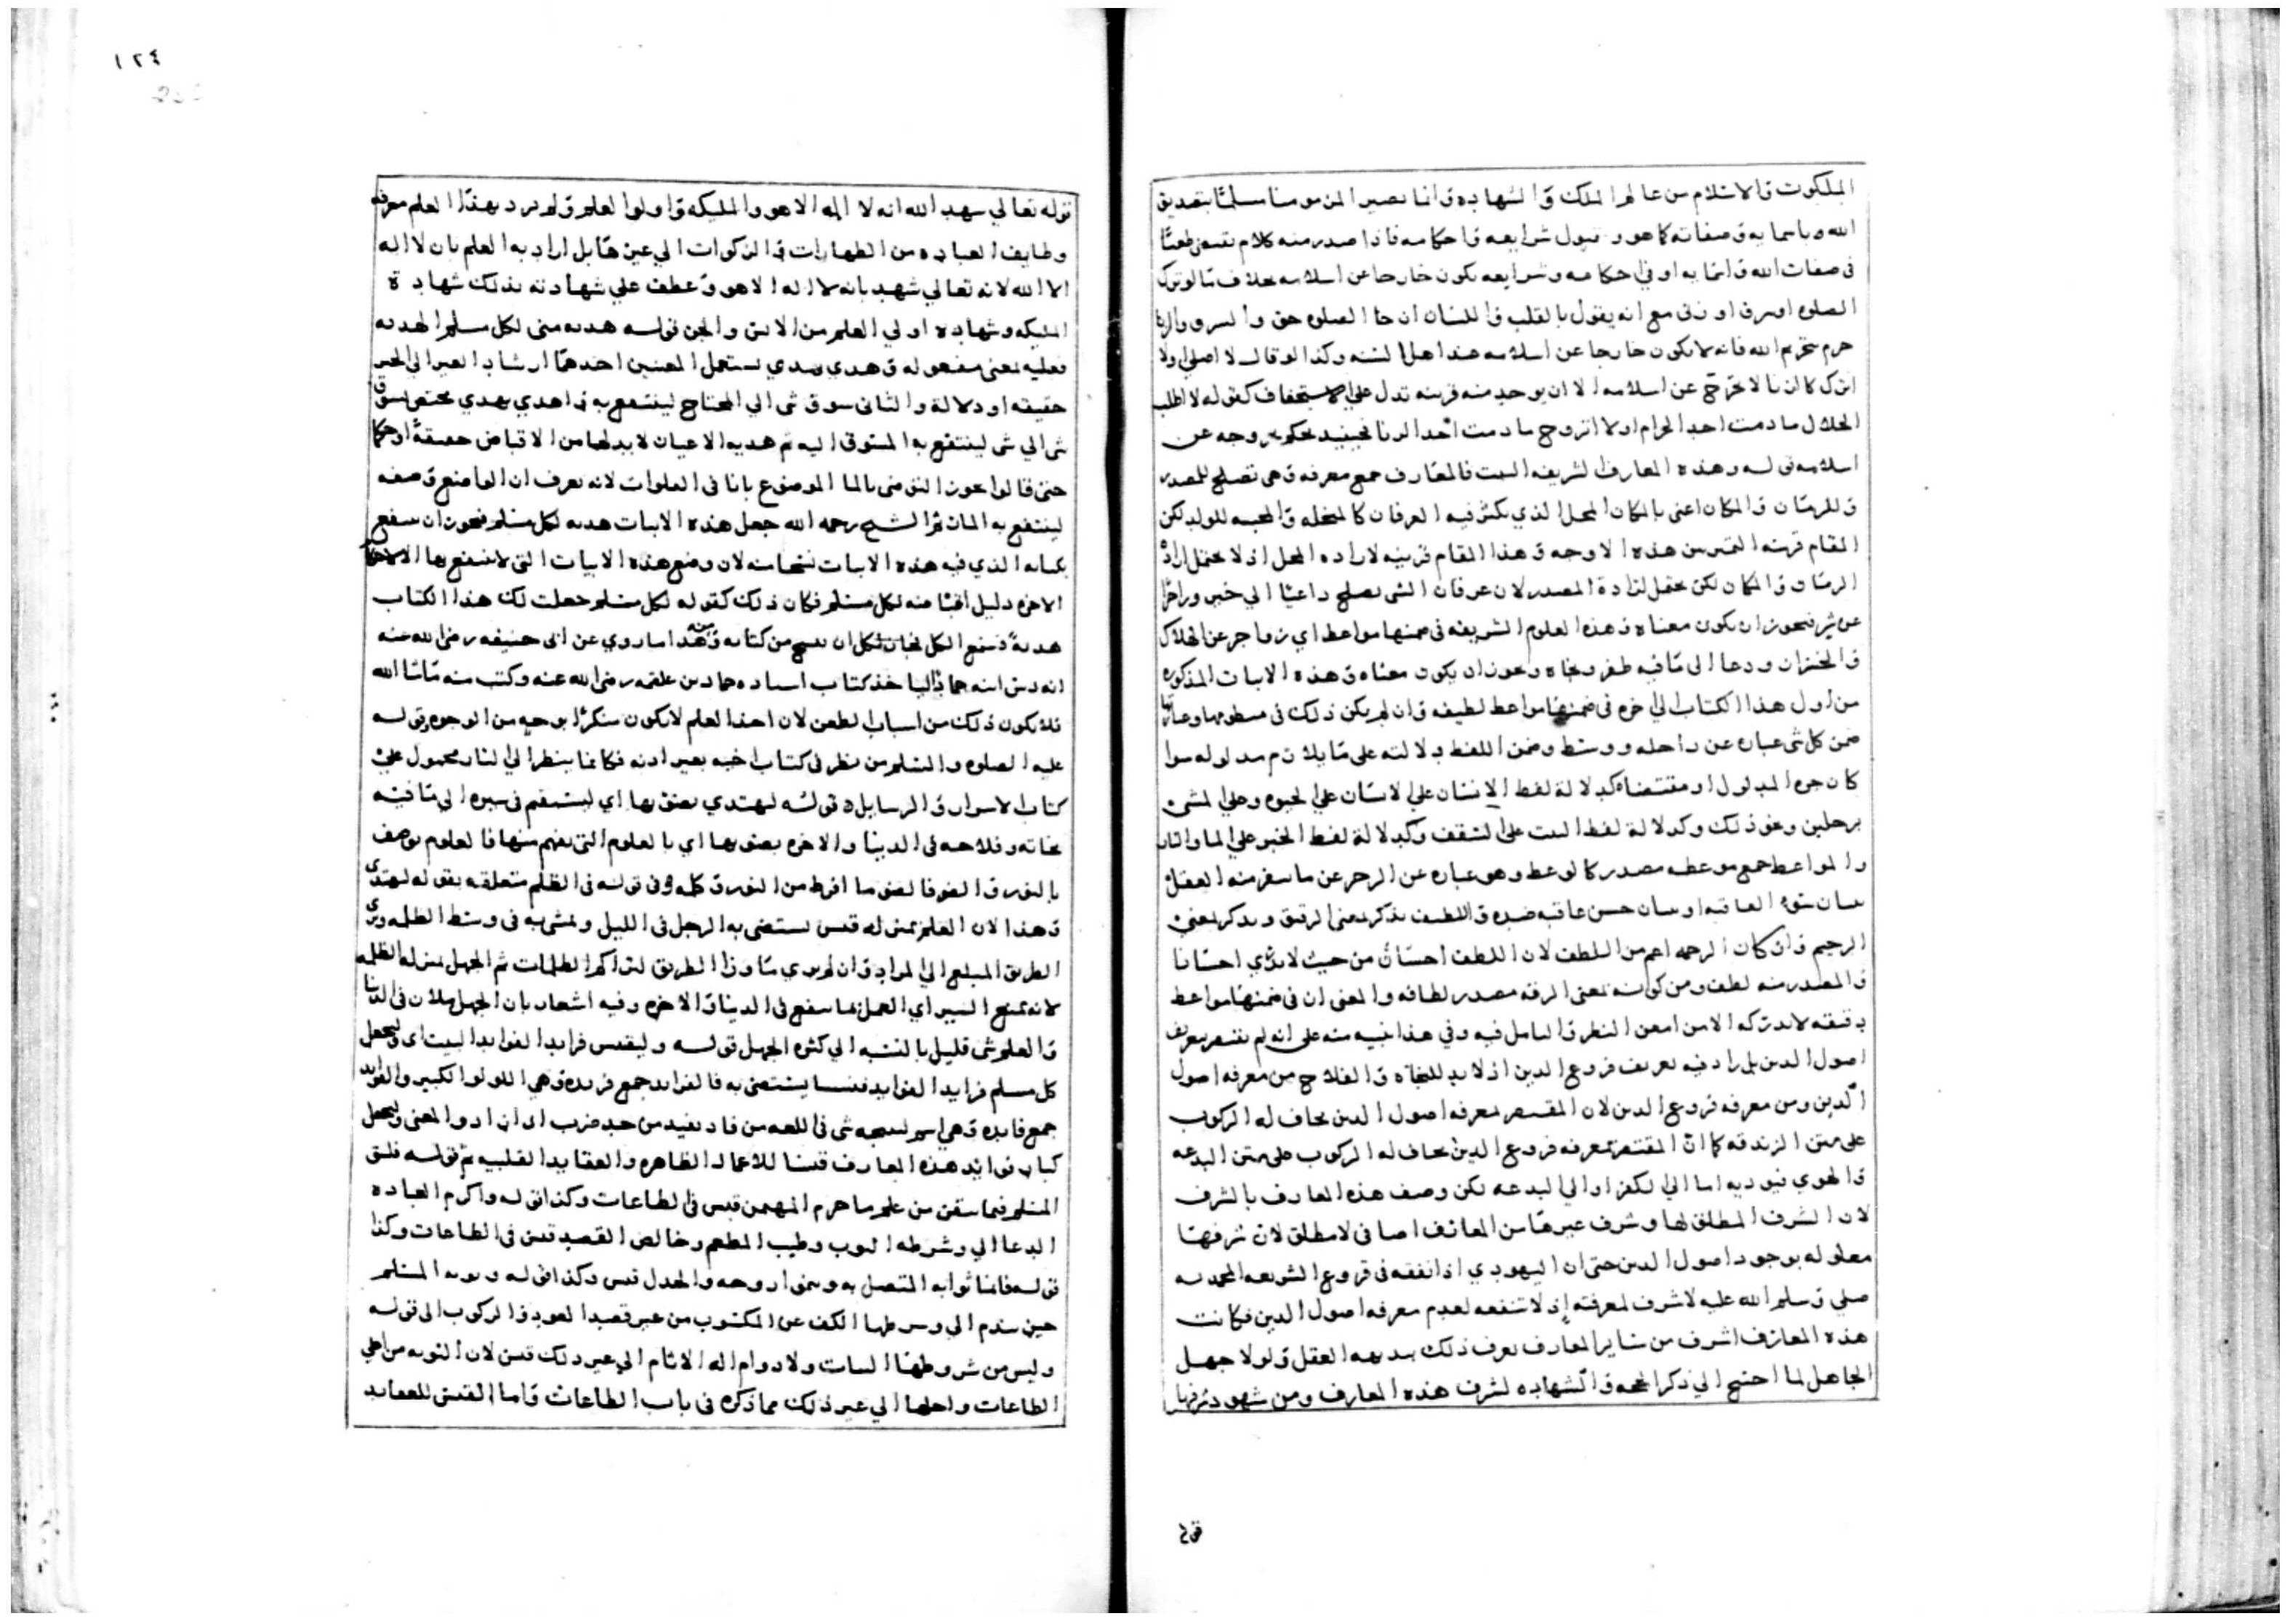 الملكوت والاسلام من عالم الملك والشهادة وانما يصير المرء مومنا مسلما بتصديق
الله وباسمايه وصفاته كما هو وقبول شرايعه واحكامه فاذا صدر منه كلام تضمن طعنا
في صفات الله واسمايه او في احكامه وشرايعه يكون خارجا عن اسلامه بخلاف ما لو ترك
الصلوه او سرق او زنى مع انه يقول بالقلب واللسان ان هذا الصلوه حق والسرقه والزنا
حرم بتحريم الله فانه لا يكون خارجا عن اسلامه عند اهل السنه وكذا لو قال لا اصلي ولا
اترك كان زنا لا يخرج عن اسلامه الا ان يوجد منه قرينه تدل علي الاستخفاف كقوله لا اطلب
الحلال ما دمت اجد الحرام او لا اتزوج ما دمت اجد الزنا فحينيذ يحكم بخروجه عن
اسلامه قوله وهذه المعارف الشريفه البيت فالمعارف جمع معرفه وهي تصلح للمصدر
وللزمان والمكان اعني بالمكان المحل الذي يكثر فيه العرفان كالمبخله والمجبنه للولد لكن
المقام قرينه التمييز من هذه الاوجه وهذا المقام قرينه لاراده المحل اذ لا يحتمل اراده
الزمان والمكان لكن يحتمل ارادة المصدر لان عرفان الشي يصلح داعيا الي خير وزاجرا
عن شر فيجوز ان يكون معناه وهذه العلوم الشريفه في ضمنها مواعظ اي زواجر عن الهلاك
والخسران ودعا الى ما فيه ظفر ونجاه ويجوز ان يكون معناه وهذه الابيات المذكوره
من اول هذا الكتاب الي اخره في ضمنها مواعظ لطيفه وان لم يكن ذلك في منطومها وعبارتها
ضمن كل شي عباره عن داخله ووسطه وضمن اللفظ دلالته على ما يلازم مدلوله سوا
كان جزء المدلول او مقتضاه كدلالة لفظ الانسان علي الانسان علي الحيوه وعلي المشي
برجلين ونحو ذلك وكدلالة لفظ البيت على السقف وكدلالة لفظ الخبز علي الما والنار
والمواعظ جمع موعظه مصدر كالوعظ وهو عباره عن الزجر عن ما ينفر منه العقل
ببيان سوء العاقبه او ببيان حسن عاقبه ضده واللطيف يذكر بمعنى الرقيق ويذكر بمعنى
الرحيم وان كان الرحمه اعم من اللطف لان اللطف احسان من حيث لا يدري احسانا
والمصدر منه لطف ومن كونه بمعنى الرقه مصدر لطافه والمعنى ان في ضمنها مواعظ
دقيقه لا يدركه الا من امعن النظر والتامل فيه وفي هذا تنبيه منه على انه لم يقتصر بتعريف
اصول الدين بل زاد فيه تعريف فروع الدين اذ لا بد للنجاه والفلاح من معرفه اصول
الدين ومن معرفه فروع الدين لان المقتصر لمعرفه اصول الدين يخاف له الركوب
على متن الزندقه كما ان المقتصر بمعرفه فروع الدين يخاف له الركوب على متن البدعه
والهوي فيوديه اما الي الكفر او الي البدعه لكن وصف هذه المعارف بالشرف
لان الشرف المطلق لها وشرف غيرها من المعارف اضافي لا مطلق لان شرفها
معلوله بوجود اصول الدين حتى ان اليهودي اذا تفقه في فروع الشريعه المحمديه
صلي وسلم الله عليه لا شرف لمعرفته اذ لا تنفعه لعدم معرفه اصول الدين فكانت
هذه المعارف اشرف من ساير المعارف يعرف ذلك ببديهه العقل ولولا جهل
الجاهل لما احتيج الي ذكر الحجه والشهاده لشرف هذه المعارف ومن شهود شرفها
قوله
١٢٤
قوله تعالي شهد الله انه لا اله الا هو والمليكه واولوا العلم ولم يرد بهذا العلم معرفه
وظايف العباده من الطهارات والزكوات الي غيرها بل اراد به العلم بان لا اله
الا الله لانه تعالي شهد بانه لا اله الا هو وعطف علي شهادته بذلك شهادة
المليكه وشهاده اولي العلم من الانس والجن قوله هديه مني لكل مسلم الهديه
فعليه بمعنى مفعوله وهدي يهدي يستعمل لمعنيين احدهما ارشاد الغير الي الخير
حقيقه او دلالة والثاني سوق شي الي المحتاج لينتفع به واهدي يهدي مختص بسوق
شي الي شي لينتفع به المسوق اليه ثم هديه الاعيان لا بد لها من الاقباض حقيقة او حكما
حتى قالوا يجوز التوضي بالما الموضوع بانا في الفلوات لانه يعرف ان الواضع وضعه
لينتفع به المارة ثم الشيخ رحمه الله جعل هذه الابيات هديه لكل مسلم فيجوز ان ينتفع
بكتابه الذي فيه هذه الابيات لان وضع هذه الابيات التي لا ينتفع بها الا
الاخره دليل اقباضه لكل مسلم فكان ذلك كقوله لكل مسلم جعلت لك هذا الكتاب
هدية فينتفع الكل فجاز لكل ان ينسخ من كتابه ومنه هذا ما روي عن ابى حنيفه رضي الله عنه
انه دس ابنه حماد لياخذ كتاب استاده حماد بن علقمه رضي الله عنه وكتب منه ما شا الله
فلا يكون ذلك من اسباب الطعن لان اخذ العلم لا يكون منكرا بوجه من الوجوه وقوله
عليه الصلوه والسلم من نظر في كتاب اخيه بغير اذنه فكانما ينظر الي النار محمول علي
كتاب الاسرار والرسايل قوله ليهتدي بضوبها اي ليستقيم في سيره الي ما فيه
نجاته وفلاحه في الدنيا والاخره بضوبها اي بالعلوم التي يفهم منها فالعلوم توصف
بالنور والضو فالضو ما افرط من النور وكلمه في في قوله في الظلم متعلقه بقوله ليهتدي
وهذا لان العلم بمنزله قبس يستضي به الرجل في الليل ويمشي به في وسط الظلمه ويري
الطريق المبلغ الي المراد وان لم يري ما وراء الطريق لتراكم الظلمات ثم الجهل بمنزله الظلمه
لانه يمنع السير اي العمل بما ينفع في الدنيا والاخره وفيه اشعار بان الجهل ملان في الدنيا
والعلم شي قليل بالنسبه الي كثره الجهل قوله وليقتبس فرايد الفوايد البيت اي وليجعل
كل مسلم فرايد الفوايد قبسا يستضي به فالفرايد جمع فريده وهي اللولو الكبير والفوايد
جمع فايده وهي اسم لنتيجه شي في اللغه من فاد يفيد من حد ضرب اذا زاد والمعنى وليجعل
كبار فوايد هذه المعارف قبسا للاعمال الظاهره والعقايد القلبيه ثم قوله فليتق
المسلم فيما يتقن من علم ما حرم المهيمن قبس في الطاعات وكذا قوله واكرم العباده
الدعا الي وشرطه التوب وطيب المطعم وخالص القصد قبس في الطاعات وكذا
قوله فانما ثوابه المتصل به وينمو اروحه والجدل قبس وكذا قوله وتوبه المسلم
حين يندم الي وشرطها الكف عن المكتسوب من غير قصد العود والركوب الى قوله
وليس من شروطها الثبات ولا دوام اله الاثام الي غير ذلك قبس لان التوبه من اجلي
الطاعات واجلها الي غير ذلك مما ذكره في باب الطاعات واما القبس للعقايد